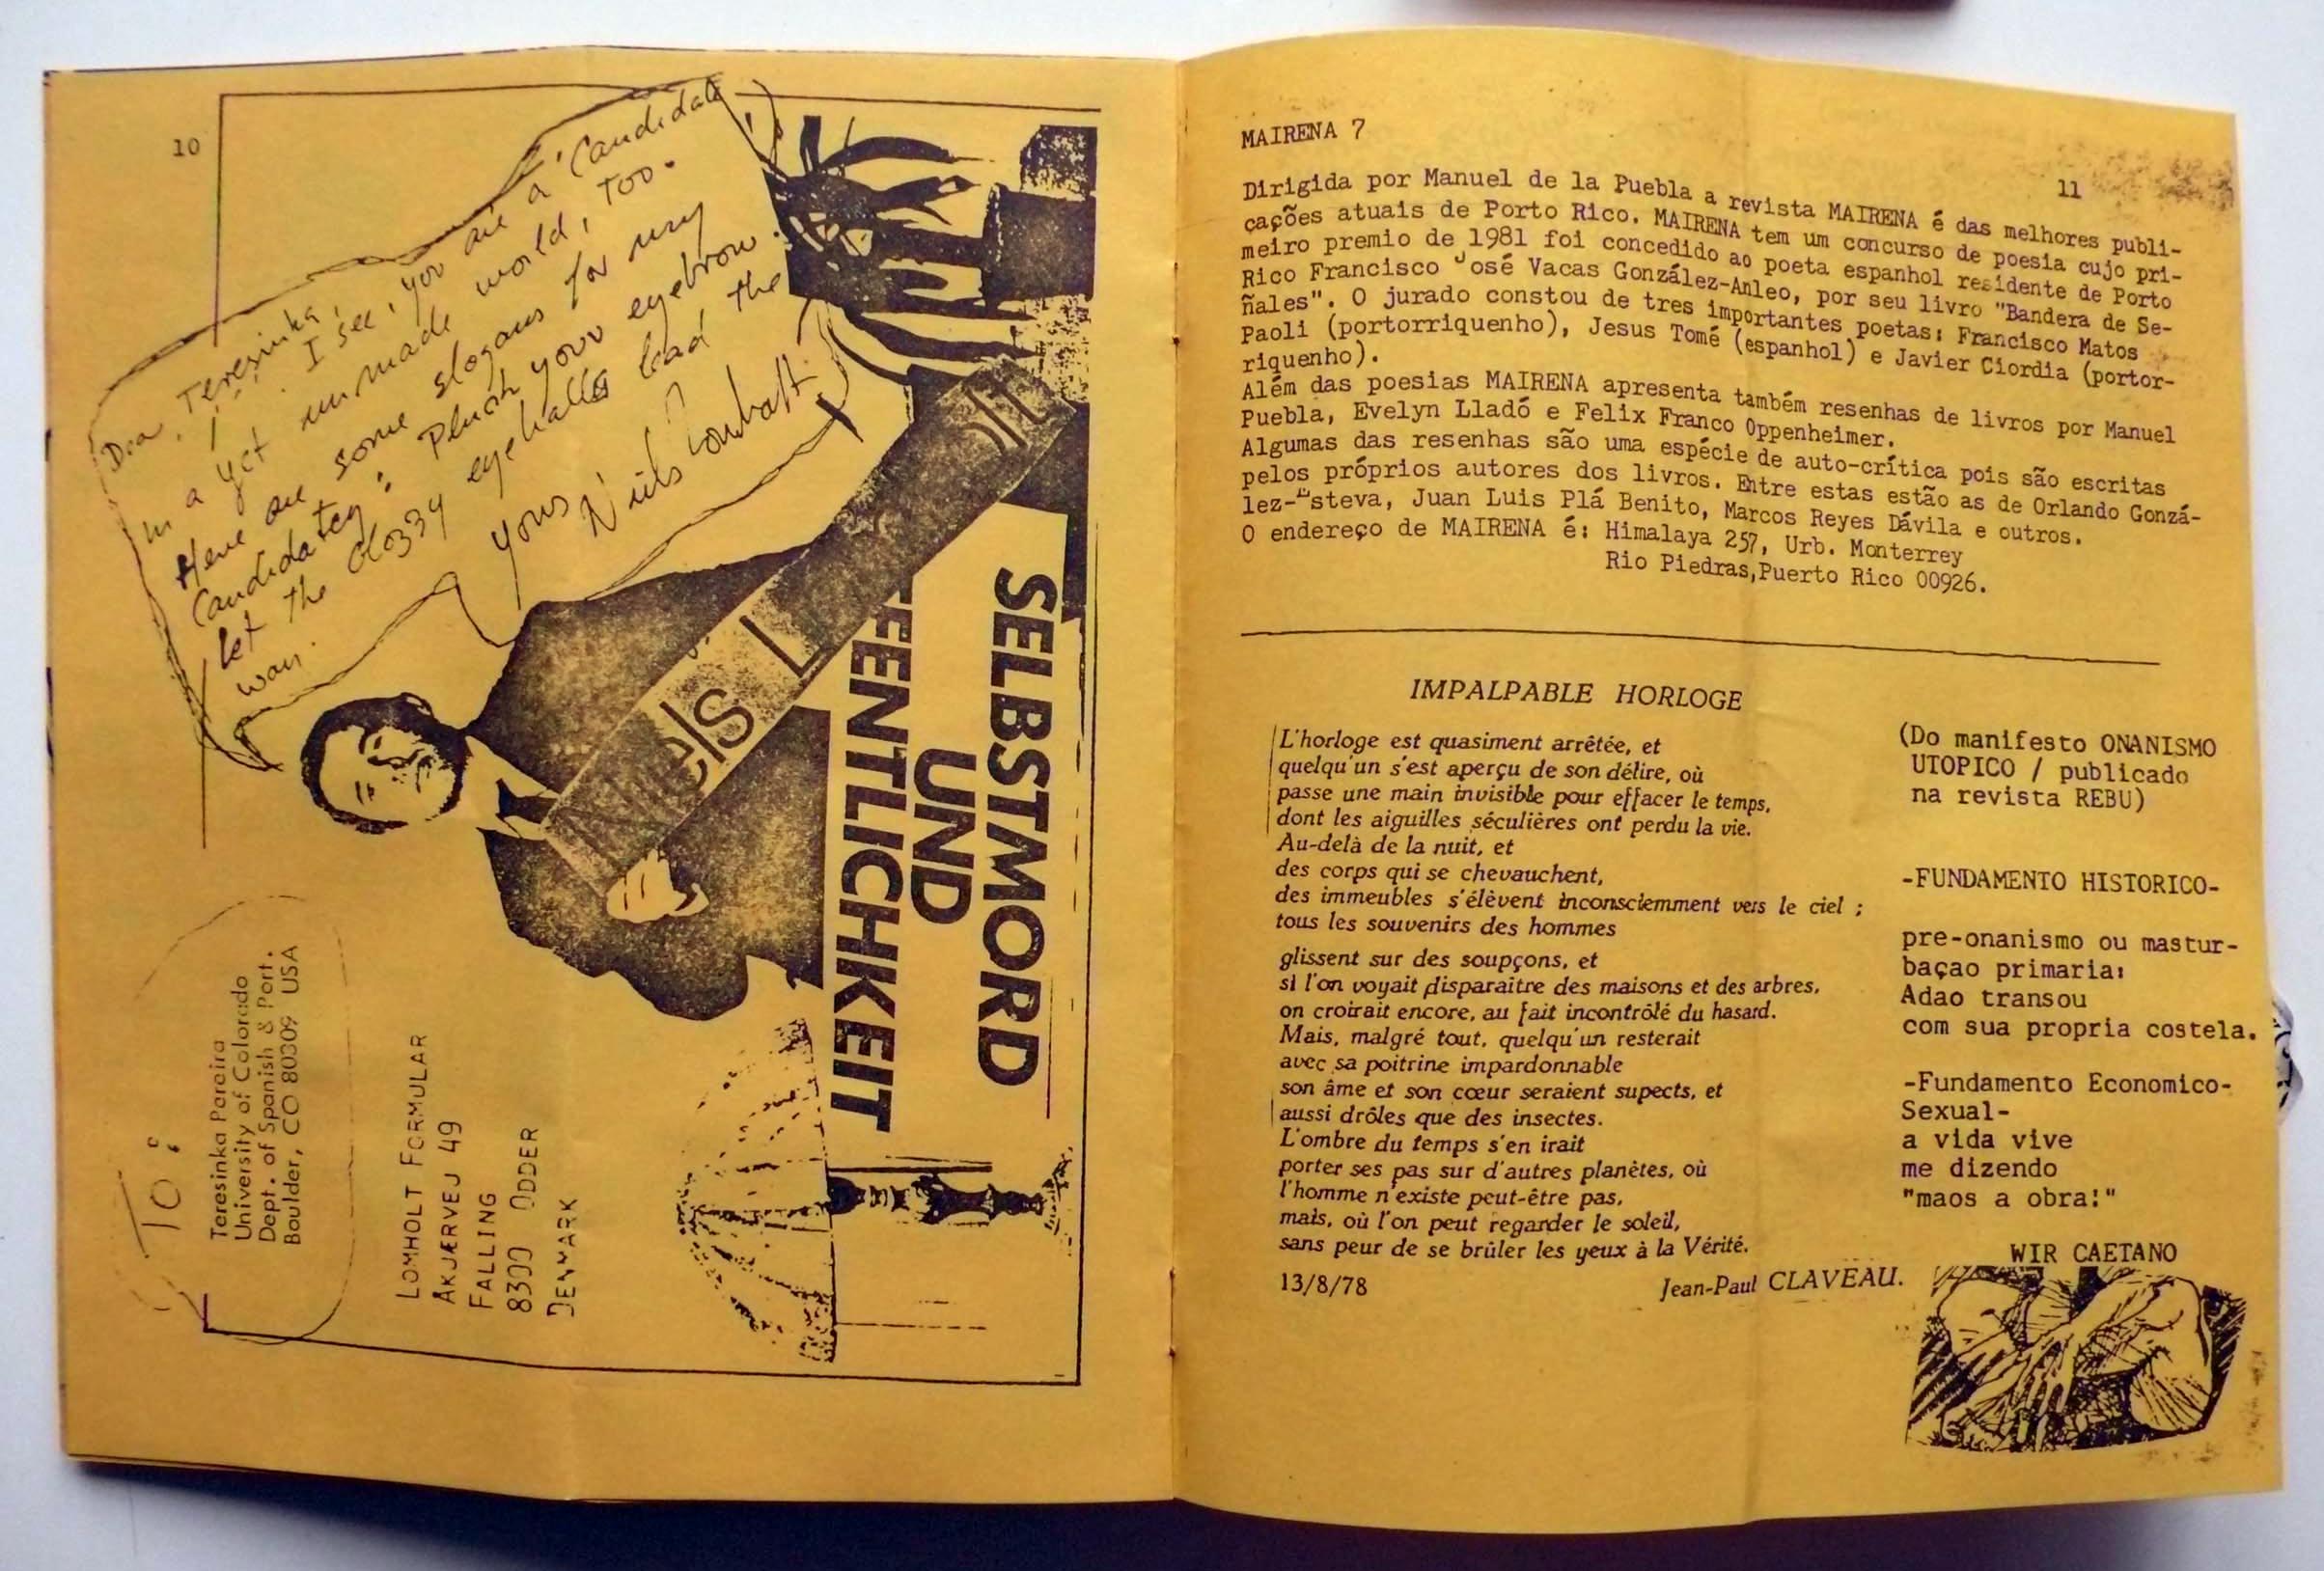 10
Dear Teresinka,
I see, you are a 'Candidate
in a yet unmade world, too.
Here are some slogans for my
Candidatcy: Pluck your eyebrow.
let the clozzy eyeballs lead the
way.
yours
Niels Lomholt
Niels L
SELBSTMORD
UND
FENTLICHKEIT
To:
Teresinka Pereira
University of Colorado
Dept. of Spanish & Port.
Boulder, CO 80309 USA
LOMHOLT FORMULAR
AKJÆRVEJ 49
FALLING
8300 ODDER
DENMARK
MAIRENA 7
11
Dirigida por Manuel de la Puebla a revista MAIRENA é das melhores publi-
cações atuais de Porto Rico. MAIRENA tem um concurso de poesia cujo pri-
meiro premio de 1981 foi concedido ao poeta espanhol residente de Porto
Rico Francisco José Vacas González-Anleo, por seu livro "Bandera de Se-
ñales". O jurado constou de tres importantes poetas: Francisco Matos
Paoli (portorriquenho), Jesus Tomé (espanhol) e Javier Ciordia (portor-
riquenho).
Além das poesias MAIRENA apresenta também resenhas de livros por Manuel
Puebla, Evelyn Lladó e Felix Franco Oppenheimer.
Algumas das resenhas são uma espécie de auto-crítica pois são escritas
pelos próprios autores dos livros. Entre estas estão as de Orlando Gonzá-
lez-Esteva, Juan Luis Plá Benito, Marcos Reyes Dávila e outros.
O endereço de MAIRENA é: Himalaya 257, Urb. Monterrey
Rio Piedras,Puerto Rico 00926.
IMPALPABLE HORLOGE
L'horloge est quasiment arrêtée, et
quelqu'un s'est aperçu de son délire, où
passe une main invisible pour effacer le temps,
dont les aiguilles séculières ont perdu la vie.
Au-delà de la nuit, et
des corps qui se chevauchent,
des immeubles s'élèvent inconsciemment vers le ciel ;
tous les souvenirs des hommes
glissent sur des soupçons, et
si l'on voyait disparaître des maisons et des arbres,
on croirait encore, au fait incontrôlé du hasard.
Mais, malgré tout, quelqu'un resterait
avec sa poitrine impardonnable
son âme et son cœur seraient supects, et
aussi drôles que des insectes.
L'ombre du temps s'en irait
porter ses pas sur d'autres planètes, où
l'homme n'existe peut-être pas,
mais, où l'on peut regarder le soleil,
sans peur de se brûler les yeux à la Vérité.
13/8/78
Jean-Paul CLAVEAU.
(Do manifesto ONANISMO
UTOPICO / publicado
na revista REBU)
-FUNDAMENTO HISTORICO-
pre-onanismo ou mastur-
baçao primaria:
Adao transou
com sua propria costela.
-Fundamento Economico-
Sexual-
a vida vive
me dizendo
"maos a obra!"
WIR CAETANO